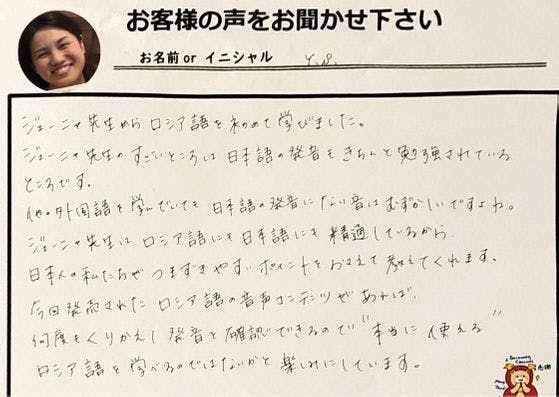 お客様の声をお聞かせ下さい
お名前 or イニシャル Y.S.
ジェーニャ先生から ロシア語を初めて学びました。
ジェーニャ先生のすごいところは 日本語の発音もきちんと勉強されている
ところです。
他の外国語を学んでいても 日本語の発音にない音はむずかしいですよね。
ジェーニャ先生は ロシア語にも日本語にも 精通しているから、
日本人の私たちが つまずきやすい ポイントをおさえて 教えてくれます。
今回発売された ロシア語の音声コンテンツがあれば、
何度もくりかえし 発音を確認できるので "本当に 使える"
ロシア語を 学べるのではないかと 楽しみにしています。
感謝